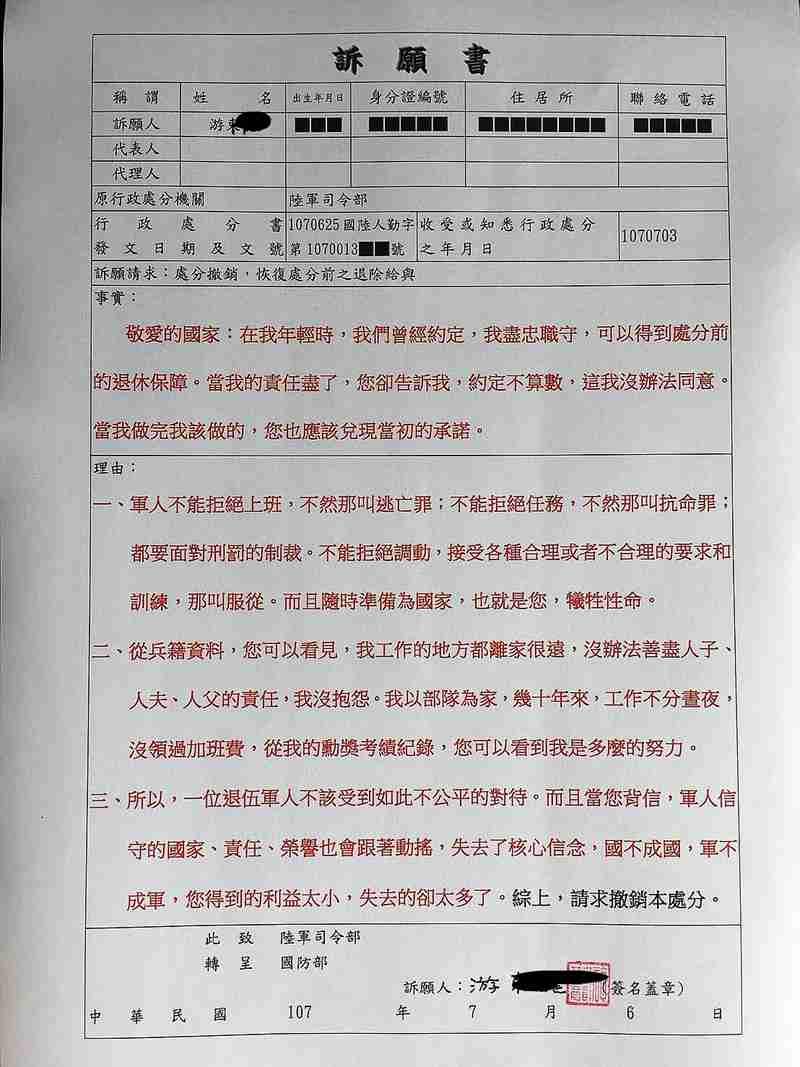 訴願書
稱謂 姓名 出生年月日 身分證編號 住居所 聯絡電話
訴願人 游東
代表人
代理人
原行政處分機關 陸軍司令部
行政處分書 1070625國陸人勤字 收受或知悉行政處分 1070703
發文日期及文號 第1070013■■號 之年月日
訴願請求：處分撤銷，恢復處分前之退除給與
事實：
敬愛的國家：在我年輕時，我們曾經約定，我盡忠職守，可以得到處分前
的退休保障。當我的責任盡了，您卻告訴我，約定不算數，這我沒辦法同意。
當我做完我該做的，您也應該兌現當初的承諾。
理由：
一、軍人不能拒絕上班，不然那叫逃亡罪；不能拒絕任務，不然那叫抗命罪；
都要面對刑罰的制裁。不能拒絕調動，接受各種合理或者不合理的要求和
訓練，那叫服從。而且隨時準備為國家，也就是您，犧牲性命。
二、從兵籍資料，您可以看見，我工作的地方都離家很遠，沒辦法善盡人子、
人夫、人父的責任，我沒抱怨。我以部隊為家，幾十年來，工作不分晝夜，
沒領過加班費，從我的勳獎考績紀錄，您可以看到我是多麼的努力。
三、所以，一位退伍軍人不該受到如此不公平的對待。而且當您背信，軍人信
守的國家、責任、榮譽也會跟著動搖，失去了核心信念，國不成國，軍不
成軍，您得到的利益太小，失去的卻太多了。綜上，請求撤銷本處分。
此致 陸軍司令部
轉呈 國防部
訴願人：游 (簽名蓋章)
中華民國 107 年 7 月 6 日